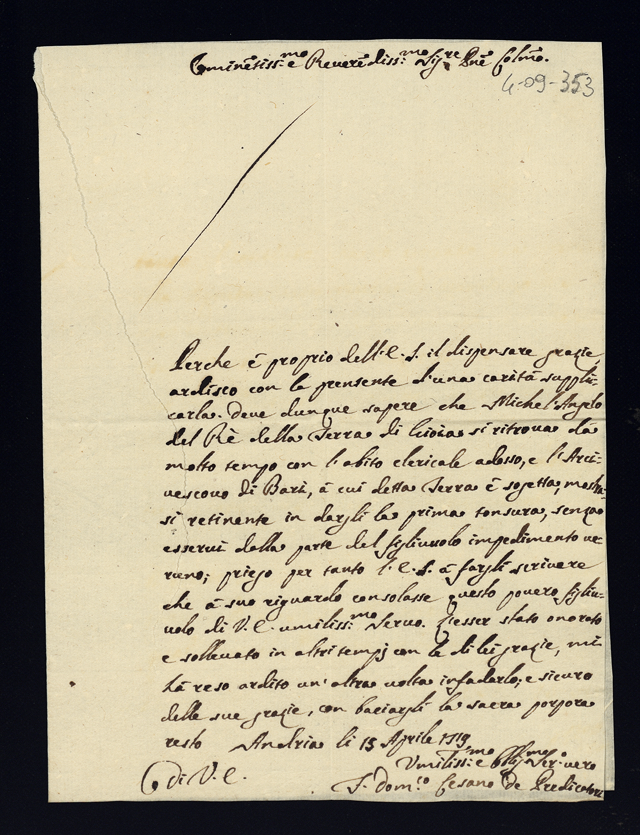 Eminẽtiss:mo e Reverẽdiss:mo Sig:re Pñe Colmo.
4-09-353
Perche é proprio dell'E. S. il dispensare grazie,
ardisco con la prensente d'una caritá suppli-
carla. Deve dunque sapere che Michel' Angelo
del Rè della Terra di Gioia si ritrova dá
molto tempo con l'abito clericale adosso, e l'Arci-
vescovo di Bari, á cui detta Terra é sogetta, mostra-
si retinente in dargli la prima tonsura, senza
esservi dalla parte del figliuolo impedimento ve-
runo; priego per tanto l'E. S. á fargli scrivere
che á suo riguardo consolasse questo povero figliu-
uolo di V. E. umiliss:mo servo. L'esser stato onorato
e sollevato in altri tempj con le di lei grazie, mi
há reso ardito un'altra volta infadarlo; e sicuro
delle sue grazie, con baciargli la sacra porpora
resto Andria li 15 Aprile 1719
Di V. E.
Umiliss:mo e Obligmo Ser: vero
F. Dom:co Cesano de Predicatori